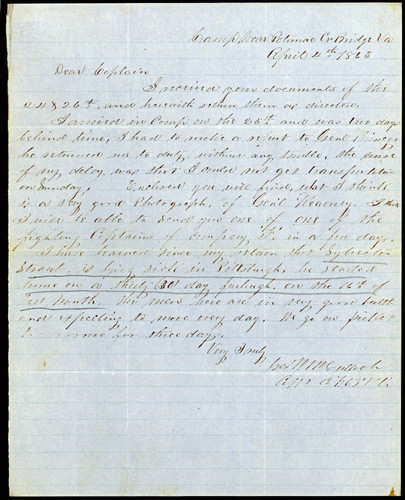 Camp Near Potomac Cr Bridge Va
April 4th 1863
Dear Captain
I received your documents of the
24 & 26th and herewith return them as directed.
I arrived in Camp on the 25th and was two days
behind time, I had to make a report to Genl
he returned me to duty, without any trouble, the cause
of my delay was that I could not get transportation
on Sunday. Enclosed you will find, what I think
is a very good Photograph, of Genl Kearney. I think
I will be able to send you one of one of the
fighting Captains of company F. in a few days.
I have learned since my return that Sylvester
is lying sick in Pittsburgh, he started
home on a thirty (30) day furlough, on the 16th of
last month. The men here are in very good health
and expecting to move every day. We go on picket
for three days.
Very Truly
Geo W McCullough